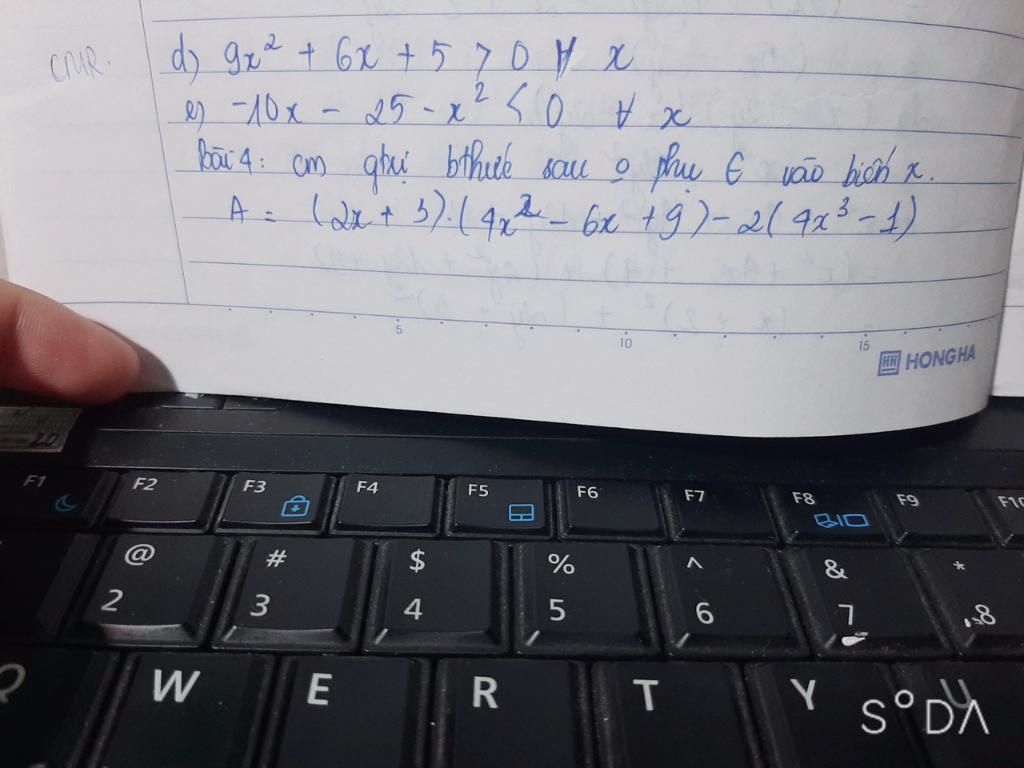 CMR.
d) 9x² + 6x + 5 > 0 ∀ x
e) -10x - 25 - x² < 0 ∀ x
Bài 4: cm gtrị bthức sau o phụ ∈ vào biến x.
A = (2x + 3).(4x² - 6x + 9) - 2(4x³ - 1)
5 10 15
HH HONG HA
20
F1 F2 F3 F4 F5 F6 F7 F8 F9 F10
@ # $ % ^ & *
2 3 4 5 6 7 8
Q W E R T Y U
S°DA